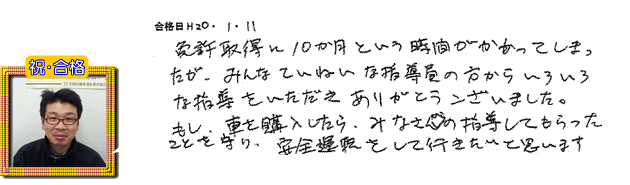 合格日H20・1・11
免許取得に10か月という時間がかかってしまっ
たが、みんなていねいな指導員の方からいろいろ
な指導をいただきありがとうございました。
もし、車を購入したら、みなさんの指導してもらった
ことを守り、安全運転をして行きたいと思います
祝・合格